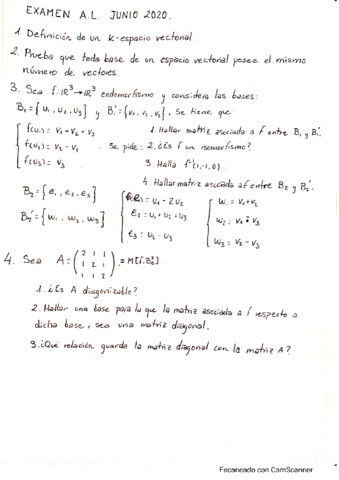 EXAMEN A.L. JUNIO 2020.
1. Definición de un K-espacio vectorial.
2. Prueba que toda base de un espacio vectorial posee el mismo
número de vectores.
3. Sea f: ℝ³→ℝ³ endomorfismo y considera las bases:
B₁={u₁,u₂,u₃} y B₁'={v₁,v₂,v₃}, se tiene que
f(u₁)= v₁-v₂+v₃
f(u₂)= v₂-v₃
f(u₃)= v₃
Se pide:
1. Hallar matriz asociada a f entre B₁ y B₁'.
2. ¿Es f un isomorfismo?
3. Halla f⁻¹(1,-1,0).
4. Hallar matriz asociada a f entre B₂ y B₂'.
B₂={e₁,e₂,e₃}
B₂'={w₁,w₂,w₃}
e₂=u₁+u₂+u₃
e₃=u₂-u₃
w₁=v₁+v₂
w₃=v₂-v₃
4. Sea A=
(2 1 1
1 2 1
1 1 2)
1. ¿Es A diagonizable?
2. Hallar una base para la que la matriz asociada a f respecto a
dicha base, sea una matriz diagonal.
3. ¿Qué relación guarda la matriz diagonal con la matriz A?
Escaneado con CamScanner